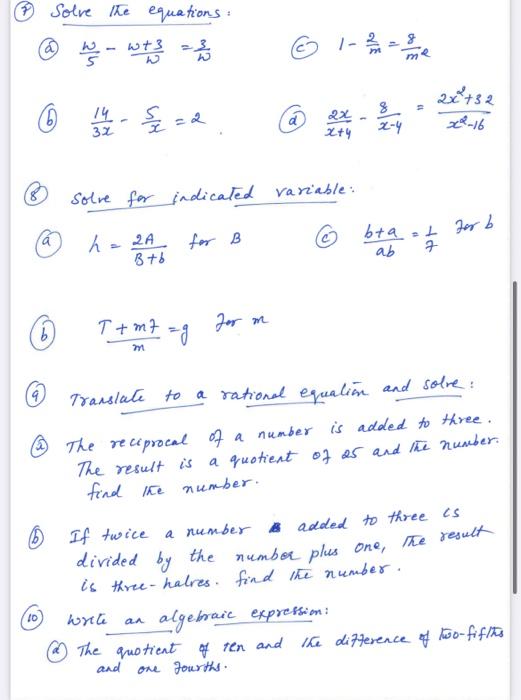 ⑦ Solve the equations:
ⓐ w/5 - (w+3)/w = 3/w
ⓒ 1 - 2/m = 8/m²
ⓑ 14/3x - 5/x = 2
ⓓ 2x/(x+4) - 8/(x-4) = (2x²+32)/(x²-16)
⑧ Solve for indicated variable:
ⓐ h = 2A/(B+b) for B
ⓒ (b+a)/ab = 1/7 for b
ⓑ (T+mf)/m = g for m
⑨ Translate to a rational equation and solve:
ⓐ The reciprocal of a number is added to three.
The result is a quotient of 25 and the number.
find the number.
ⓑ If twice a number added to three is
divided by the number plus one, the result
is three-halves. find the number.
⑩ Write an algebraic expression:
ⓐ The quotient of ten and the difference of two-fifths
and one fourths.